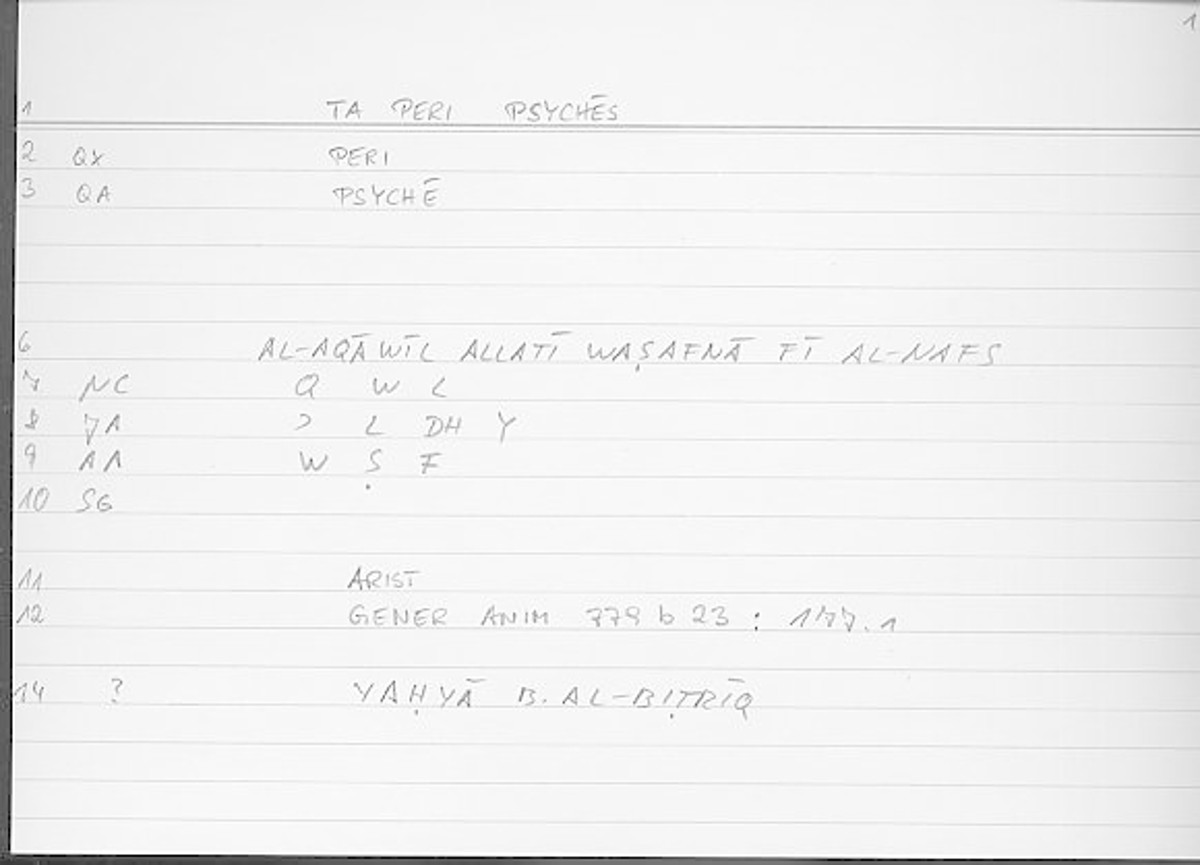 1
1 TA PERI PSYCHĒS
2 QX PERI
3 QA PSYCHĒ
6 AL-AQĀWĪL ALLATĪ WAṢAFNĀ FĪ AL-NAFS
7 NC Q W L
8 JA ʾ L DH Y
9 AA W Ṣ F
10 SG
11 ARIST
12 GENER ANIM 779 b 23 : 177.1
14 ? YAḤYĀ B. AL-BIṬRĪQ